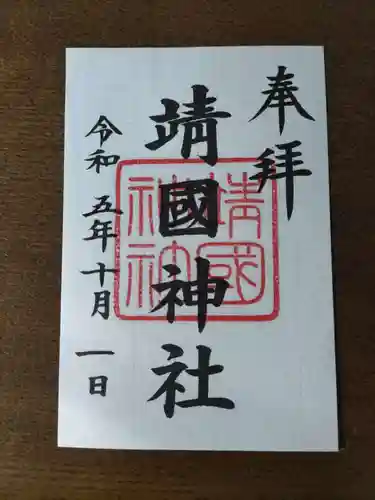 奉拝
靖國神社
靖國
神社
令和五年十月一日